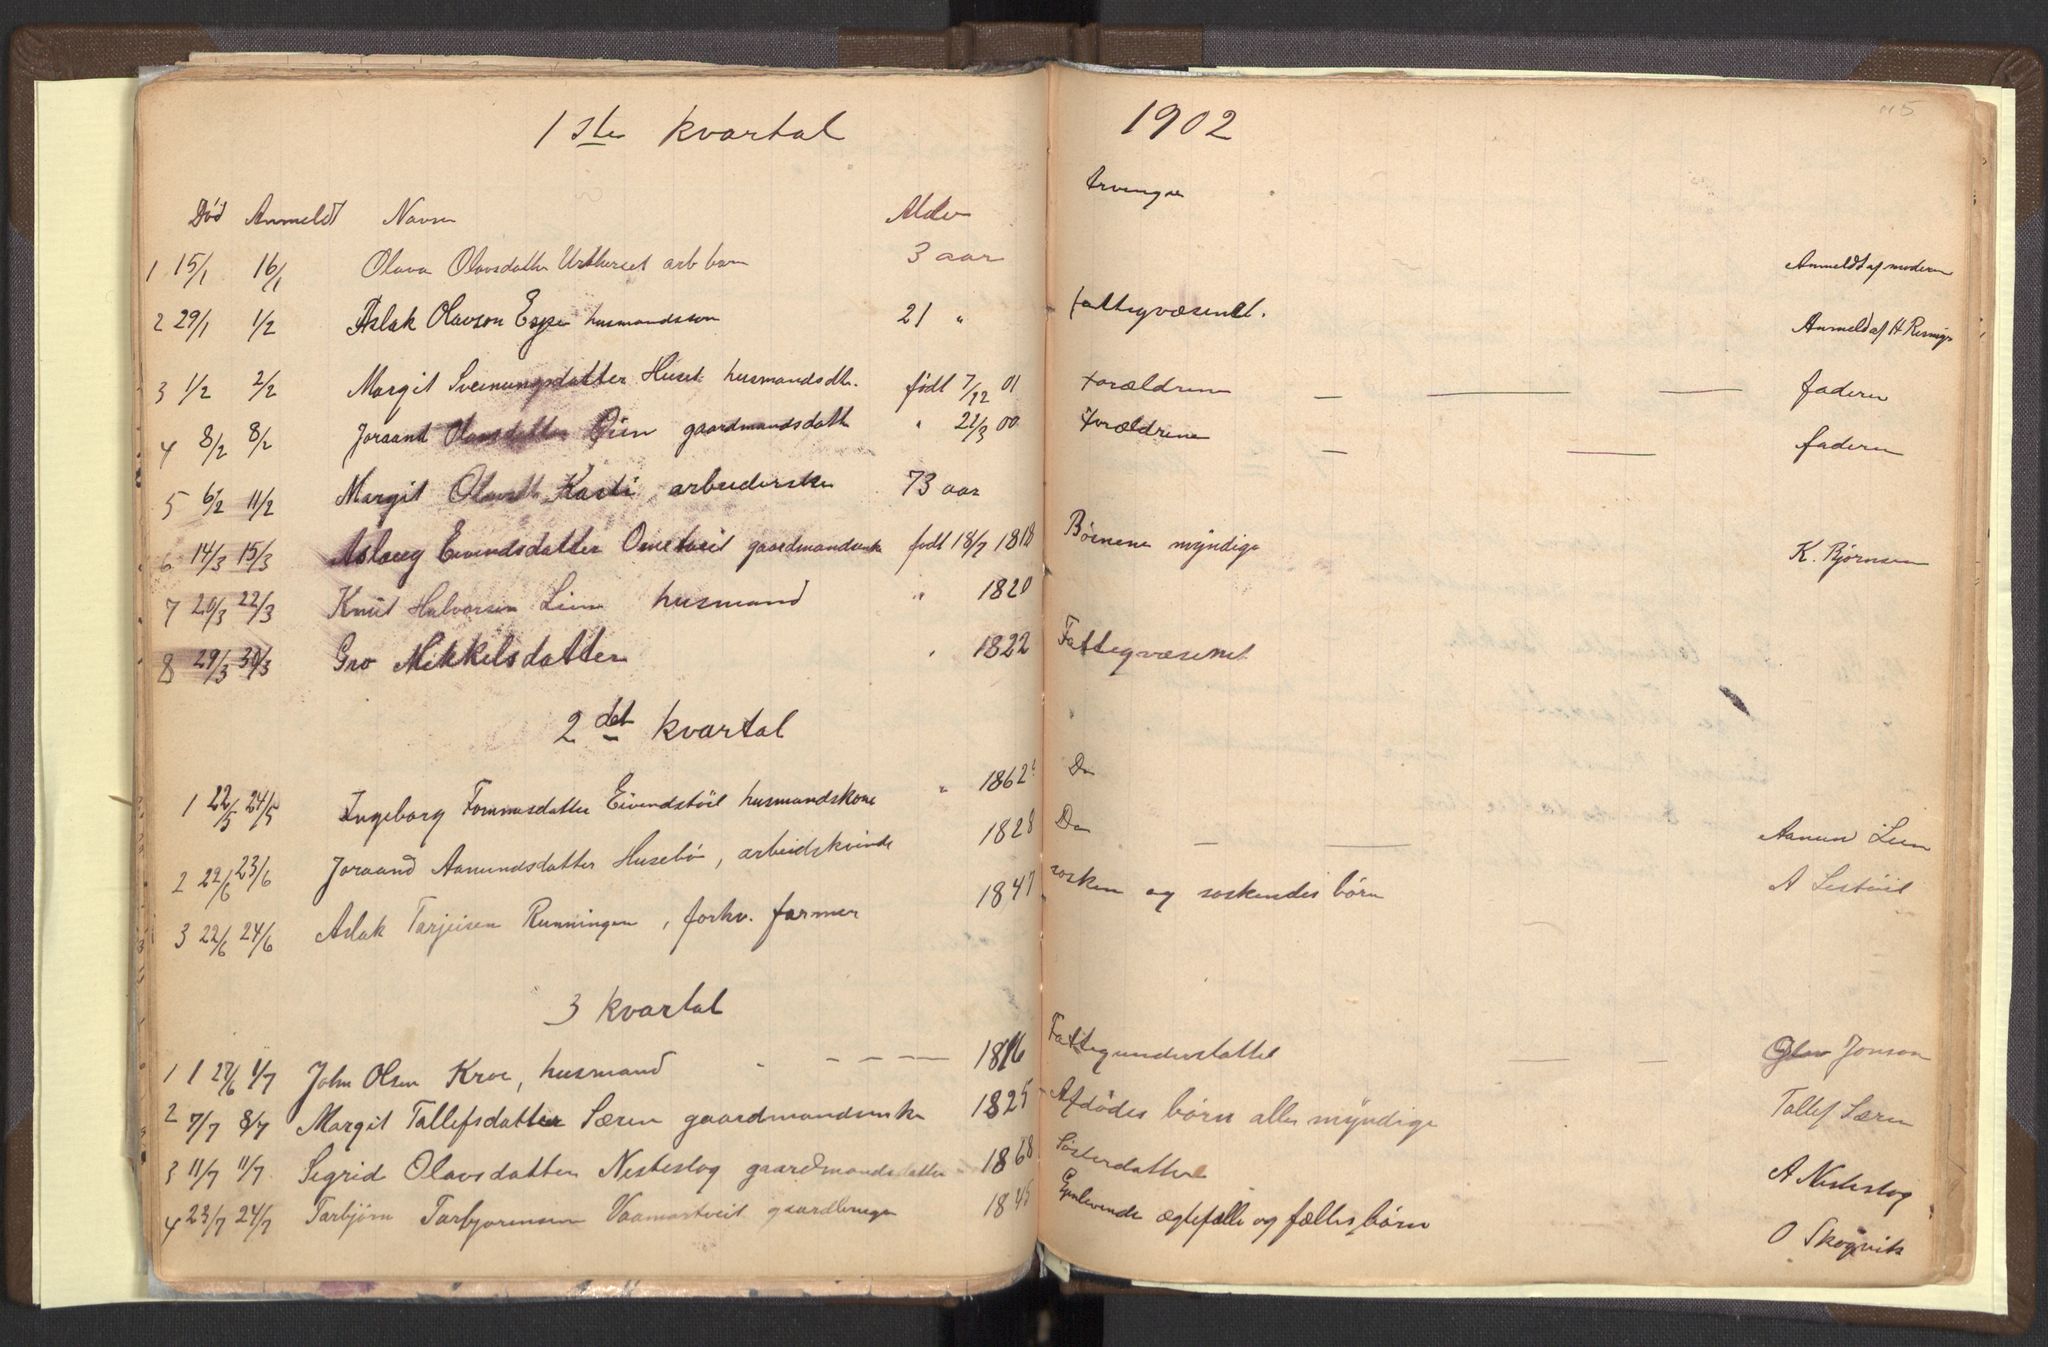 1ste kvartal 1902
115
Død Anmeldt Navn Alder Arvinger
1 15/1 16/1 Olava Olavsdatter arb barn 3 aar Anmeldt af moderen
2 29/1 1/2 Aslak Olavson husmandsson 21 " Fattigvæsenet. Anmeldt af H
3 1/2 2/2 Margit Sveinungsdatter Huset husmandsdtr. født 7/12 01 Forældrene — — — faderen
4 8/2 8/2 Joraand Olavsdatter gaardmandsdatt " 22/3 00 Forældrene — — faderen
5 6/2 11/2 Margit Olavsdt Kaasti, arbeiderske 73 aar
6 14/3 15/3 Aslaug Eivindsdatter gaardmandsenke født 18/7 1818 Børnene myndige K. Bjørnsen
7 20/3 22/3 Knut Halvorsen husmand " 1820
8 29/3 30/3 Gro Mikkelsdatter " 1822 Fattigvæsenet
2det kvartal
1 22/5 24/5 Ingeborg Tommasdatter Eivindstöil husmandskone " 1862 Do
2 22/6 23/6 Joraand Aamundsdatter Husebö, arbeidskvinde 1828 Do — — Aanun Lien
3 22/6 24/6 Aslak Tarjeisen Runningen, forhv. farmer 1847 søsken og søskendes børn A
3 kvartal
1 1 27/6 1/7 John Olsen Kroe, husmand - - - - 1816 Fattigunderstøttet — — Olav Jonson
2 7/7 8/7 Margit Tallefsdatter Særen gaardmandsenke 1825 Afdødes børn alle myndige Tallef Særen
3 11/7 11/7 Sigrid Olavsdatter Nesteslog gaardmandsdatter 1868 Søsterdatter A Nesteslog
4 23/7 24/7 Tarbjörn Tarbjørensen Vaamartveit gaardbruger 1845 Gjenlevende ægtefælle og fælles børn O Skogvik